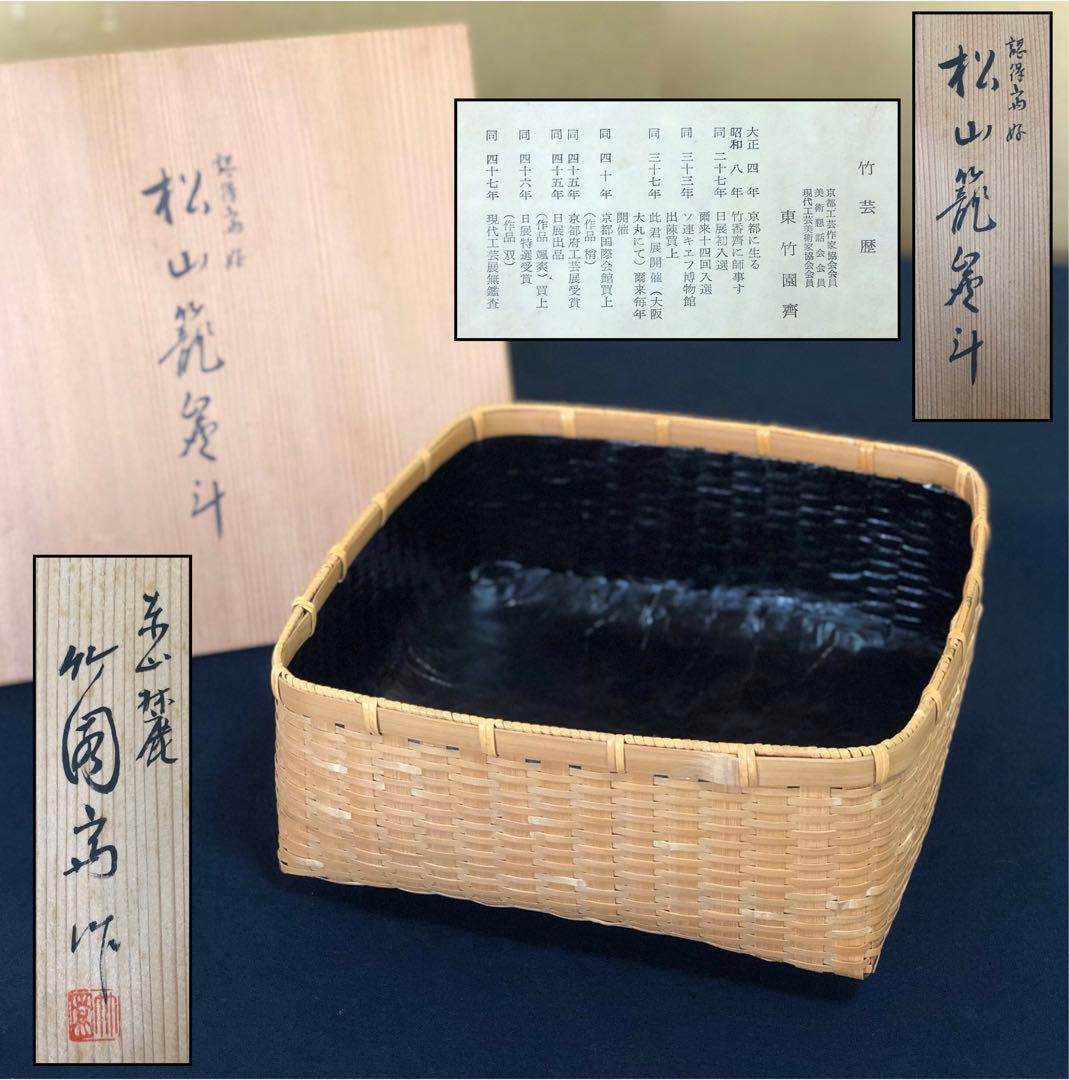 認得斎好
松山籠炭斗
認得斎好
松山籠炭斗
竹芸歴
京都工芸作家協会会員
美術懇話会会員
現代工芸美術家協会会員
東竹園齊
大正四年 京都に生る
昭和八年 竹香齊に師事す
同二十七年 日展初入選
爾来十四回入選
同三十三年 ソ連キエフ博物館
出陳買上
同三十七年 此君展開催(大阪
大丸にて)爾来毎年
開催
同四十年 京都国際会館買上
(作品 梢)
同四十五年 京都府工芸展受賞
同四十五年 日展出品
(作品 颯爽)、買上
同四十六年 日展特選受賞
(作品 双)
同四十七年 現代工芸展無鑑査
東山麓
竹園斎作